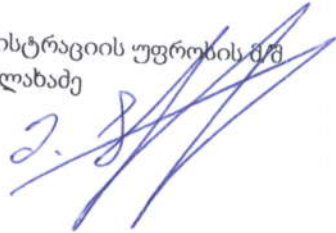 ისტრაციის უფროსის მ/შ
ლახაძე